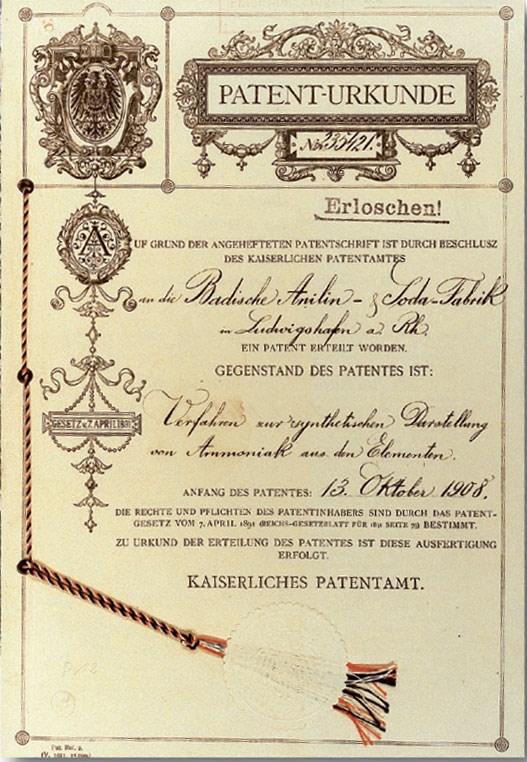 PATENT-URKUNDE
No. 235421.
Erloschen!
AUF GRUND DER ANGEHEFTETEN PATENTSCHRIFT IST DURCH BESCHLUSZ
DES KAISERLICHEN PATENTAMTES
an die Badische Anilin- & Soda-Fabrik
in Ludwigshafen a. Rh.
EIN PATENT ERTEILT WORDEN.
GEGENSTAND DES PATENTES IST:
GESETZ v. 7. APRIL 1891
Verfahren zur synthetischen Darstellung
von Ammoniak aus den Elementen.
ANFANG DES PATENTES: 13. Oktober 1908.
DIE RECHTE UND PFLICHTEN DES PATENTINHABERS SIND DURCH DAS PATENT-
GESETZ VOM 7. APRIL 1891 (REICHS-GESETZBLATT FÜR 1891 SEITE 79) BESTIMMT.
ZU URKUND DER ERTEILUNG DES PATENTES IST DIESE AUSFERTIGUNG
ERFOLGT.
KAISERLICHES PATENTAMT.